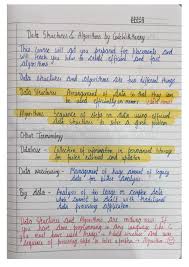 Data Structures & Algorithms by
This course will get you prepared for Placements and
will teach you how to efficient and fast
algorithms.
Data Structures and Algorithms are two different things.
Data Structures - Arrangement of data so that they can
be used efficiently in memory
Algorithms - Sequence of steps on data using efficient
data structures to solve a given problem
Other Terminology
Database - Collection of information in permanent storage
for faster retrieval and updation
Data warehousing - Management of huge amount of legacy
data for better analysis.
Big data - Analysis of too large or complex data
which cannot be dealt with traditional
data processing application
Data Structures and Algorithms are nothing new. If
you have done programming in any language like C
you must have used Arrays → A data structure and
sequence of processing steps to solve a problem → Algorithm